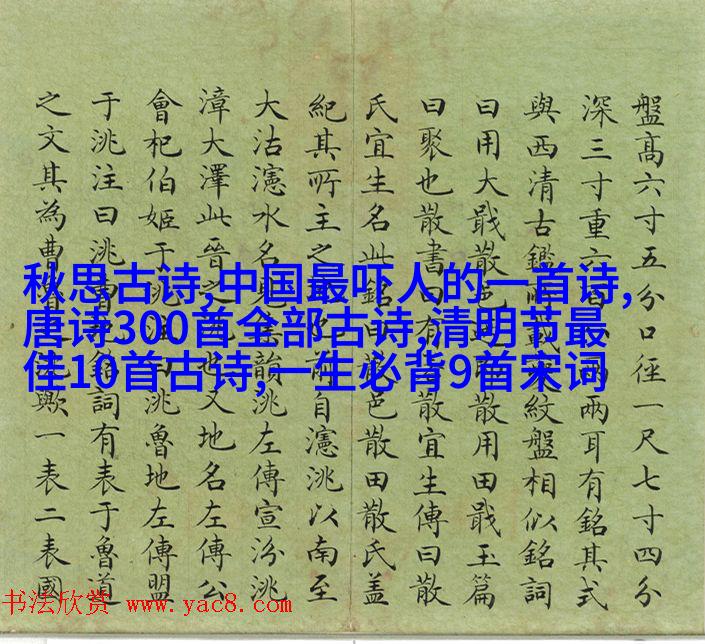 盤高六寸五分口徑一尺七寸四分
深三寸重六兩兩耳有銘其式
與西清古鑑紋盤相似銘詞
曰用大戕散邑散用田戕玉篇
曰聚也散書曰有散宜生傳曰散
氏宜生名此銘曰邑散田散氏蓋
紀其所主之前自瀗洮以南至
大沽瀗水名見韻洮左傳宣汾洮
漳大澤此晉之又地名左傳公
會杞伯姬于洮注曰洮魯地左傳盟
于洮注曰洮銘詞有表于魯道
之文其為曹洮歟一表二表國
秋思古诗,中国最吓人的一首诗,
唐诗300首全部古诗,清明节最
佳10首古诗,一生必背9首宋词
书法欣赏 www.yac8.com